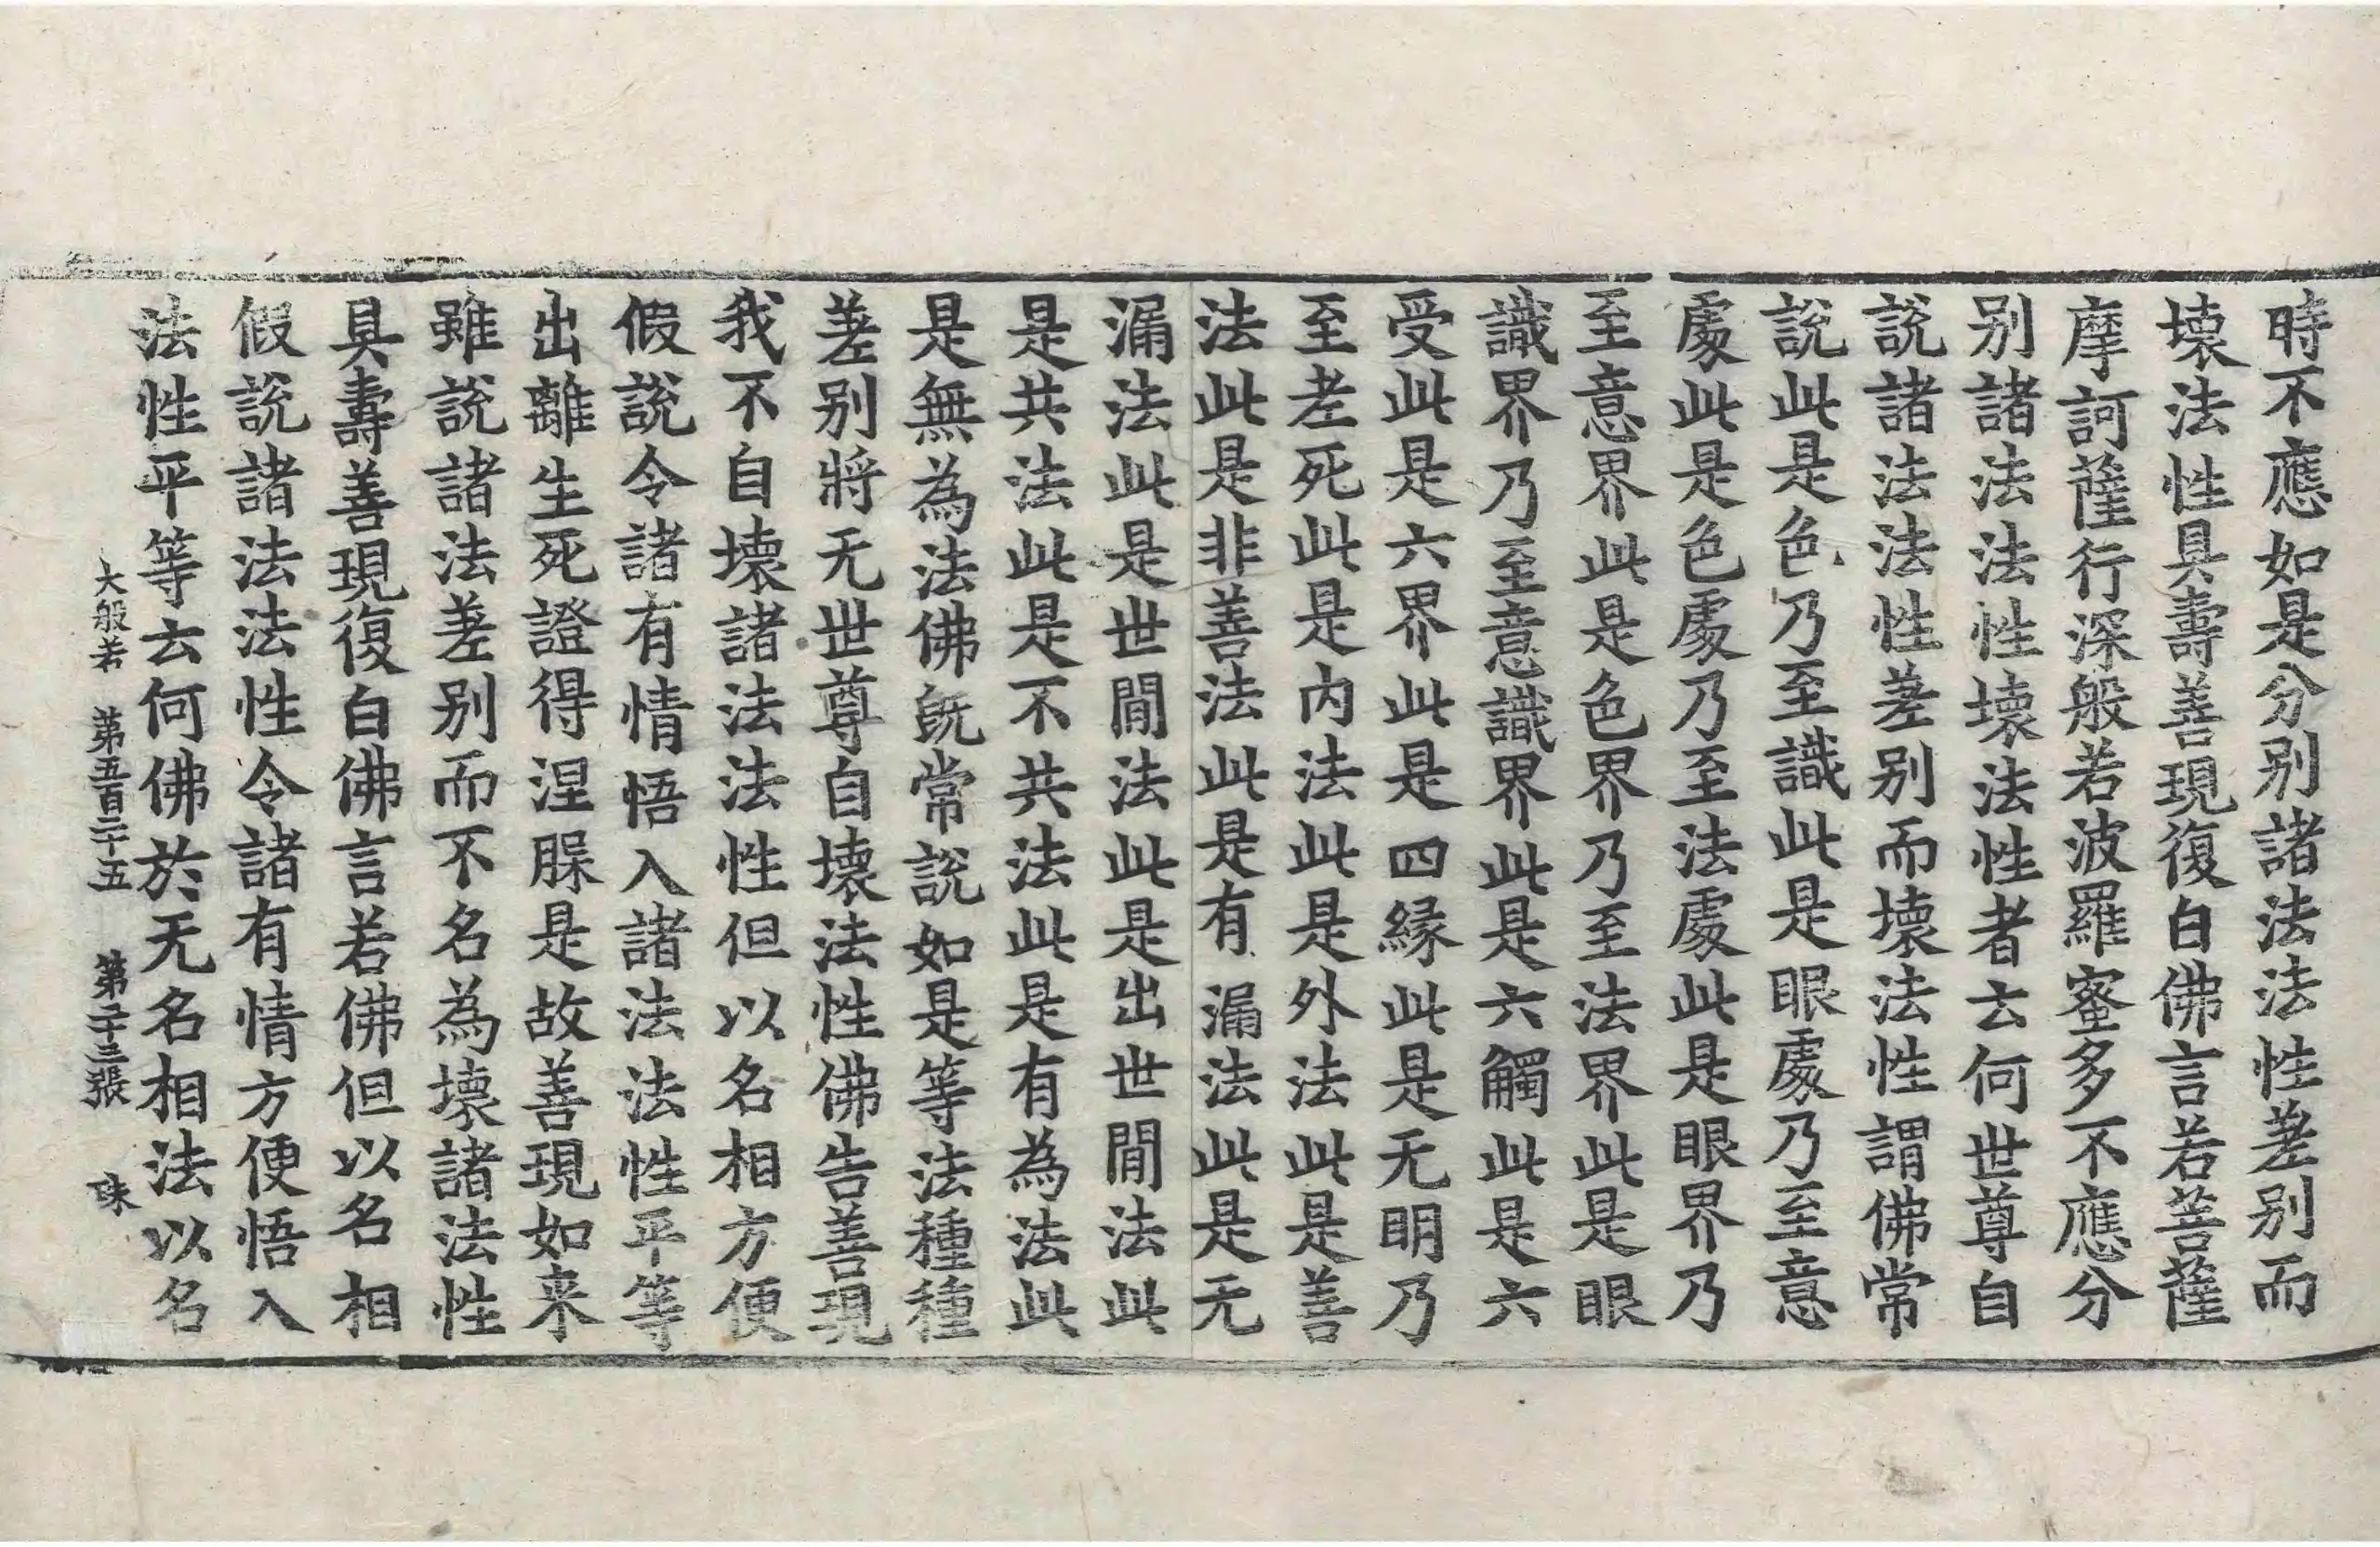 時不應如是分別諸法法性差別而
壞法性具壽善現復白佛言若菩薩
摩訶薩行深般若波羅蜜多不應分
別諸法法性壞法性者云何世尊自
說諸法法性差別而壞法性謂佛常
說此是色乃至識此是眼處乃至意
處此是色處乃至法處此是眼界乃
至意界此是色界乃至法界此是眼
識界乃至意識界此是六觸此是六
受此是六界此是四緣此是无明乃
至老死此是內法此是外法此是善
法此是非善法此是有漏法此是无
漏法此是世間法此是出世間法此
是共法此是不共法此是有為法此
是無為法佛旣常說如是等法種種
差別將无世尊自壞法性佛告善現
我不自壞諸法法性但以名相方便
假說令諸有情悟入諸法法性平等
出離生死證得涅槃是故善現如来
雖說諸法差別而不名為壞諸法性
具壽善現復白佛言若佛但以名相
假說諸法法性令諸有情方便悟入
法性平等云何佛於无名相法以名
大般若 第五百二十五 第二十三張 珠